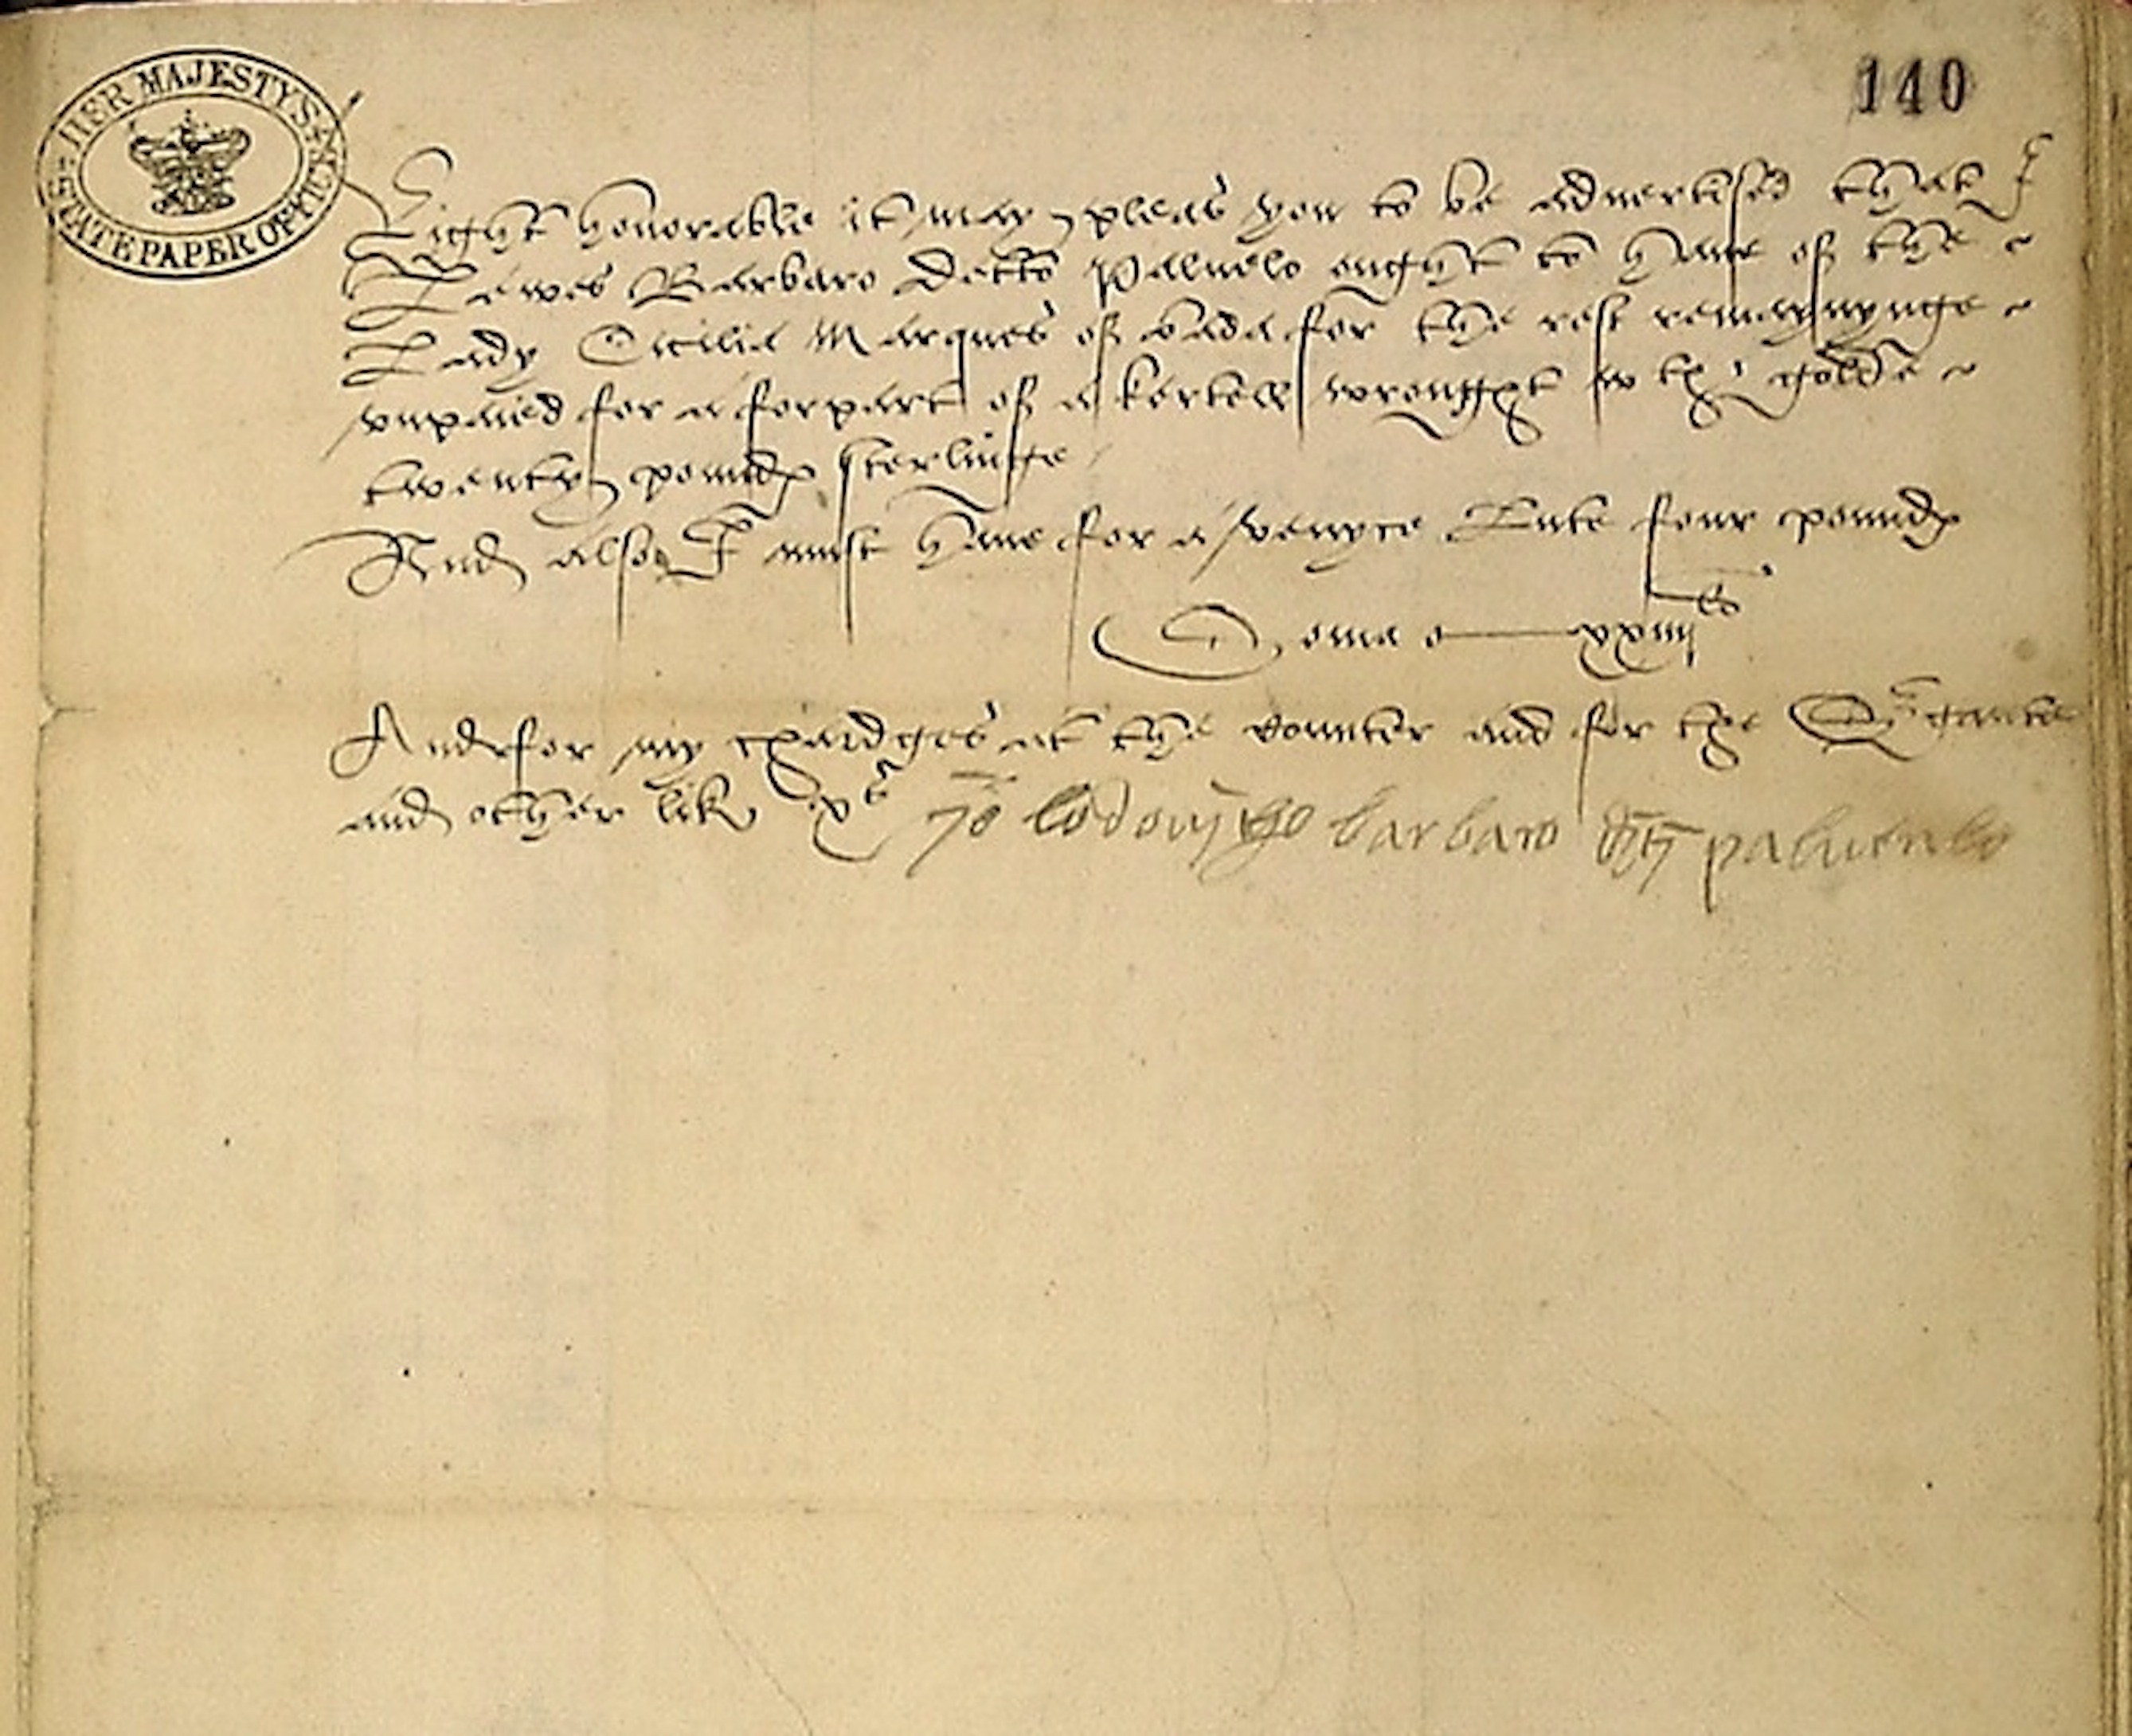 HER MAJESTYS
STATE PAPER OFFICE
140
Right honorable it may pleas you to be advertised that I
Lewes Barbaro detto Paluelo ought to have of the
Lady Cicilia Marques of bada for the rest remaynynge
unpaied for a forpart of a kertell wrought wth golde
twenty pounds sterlinge
And also I must have for a venyce Lute four pounds
Soma xxiiij li
And for my chardges at the counter and for the
and other lik x li Jo lodovigo barbaro paluvelo